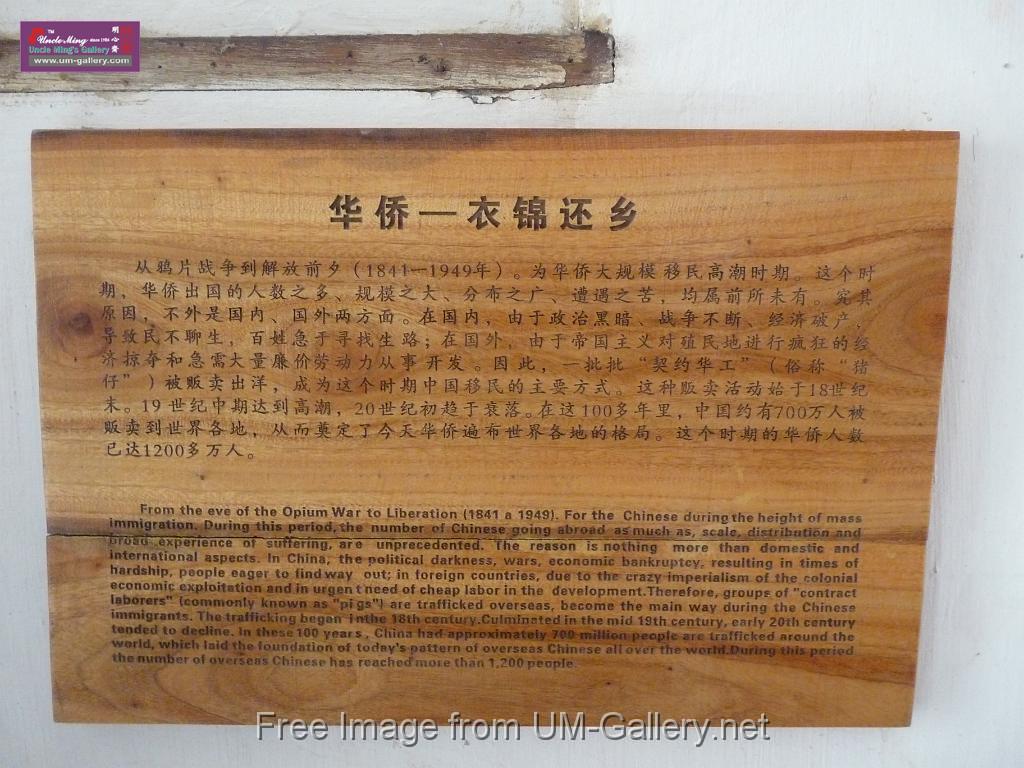 TM
Uncle Ming since 1986
Uncle Ming's Gallery
www.um-gallery.com
华侨—衣锦还乡
从鸦片战争到解放前夕（1841—1949年）。为华侨大规模移民高潮时期。这个时
期，华侨出国的人数之多、规模之大、分布之广、遭遇之苦，均属前所未有。究其
原因，不外是国内、国外两方面。在国内，由于政治黑暗、战争不断、经济破产，
导致民不聊生，百姓急于寻找生路；在国外，由于帝国主义对殖民地进行疯狂的经
济掠夺和急需大量廉价劳动力从事开发。因此，一批批“契约华工”（俗称“猪
仔”）被贩卖出洋，成为这个时期中国移民的主要方式。这种贩卖活动始于18世纪
末。19世纪中期达到高潮，20世纪初趋于衰落。在这100多年里，中国约有700万人被
贩卖到世界各地，从而奠定了今天华侨遍布世界各地的格局。这个时期的华侨人数
已达1200多万人。
From the eve of the Opium War to Liberation (1841 a 1949). For the Chinese during the height of mass
immigration. During this period, the number of Chinese going abroad as much as, scale, distribution and
broad experience of suffering, are unprecedented. The reason is nothing more than domestic and
international aspects. In China, the political darkness, wars, economic bankruptcy, resulting in times of
hardship, people eager to find way out; in foreign countries, due to the crazy imperialism of the colonial
economic exploitation and in urgent need of cheap labor in the development.Therefore, groups of "contract
laborers" (commonly known as "pigs") are trafficked overseas, become the main way during the Chinese
immigrants. The trafficking began in the 18th century.Culminated in the mid 19th century, early 20th century
tended to decline. In these 100 years, China had approximately 700 million people are trafficked around the
world, which laid the foundation of today's pattern of overseas Chinese all over the world.During this period
the number of overseas Chinese has reached more than 1,200 people.
Free Image from UM-Gallery.net